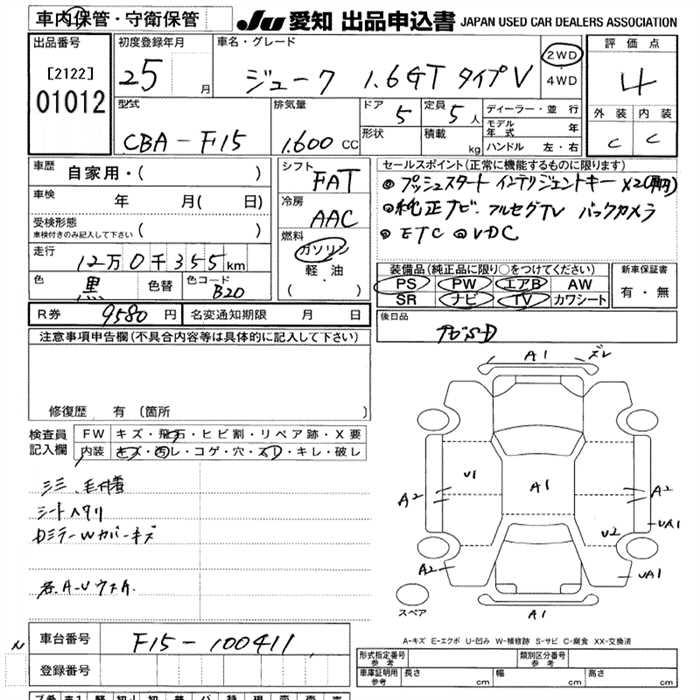 車内保管・守衛保管
JU 愛知 出品申込書 JAPAN USED CAR DEALERS ASSOCIATION
出品番号
[2122]
01012
初度登録年月
25 月
車名・グレード
ジューク 1.6GT タイプV
2WD
4WD
評価点
4
外装 内装
C C
型式
CBA-F15
排気量
1.600 CC
ドア 5
定員 5 人
形状
積載 kg
ディーラー・並行
モデル年式 年
ハンドル 左・右
車歴 自家用・( )
車検 年 月( 日)
受検形態
車検付きのみ記入して下さい ( )
走行 12万0千355km
色 黒 色替 色コード B20
シフト
FAT
冷房
AAC
燃料
ガソリン
軽油
( )
セールスポイント(正常に機能するものに限ります)
◎プッシュスタート インテリジェントキー
◎純正ナビ・フルセグTV バックカメラ
◎ETC ◎VDC
装備品(純正品に限り○をつけてください)
PS PW エアB AW
SR ナビ TV カワシート
新車保証書
有・無
R券 9580 円 名変通知期限 月 日
後日品
注意事項申告欄(不具合内容等は具体的に記入して下さい)
修復歴 有 (箇所 )
検査員記入欄
FW キズ・飛石・ヒビ割・リペア跡・X要
内装 キズ・汚レ・コゲ・穴・スレ・キレ・破レ
シートヘタリ
DミラーWカバーキズ
A1 ズレ
U1 A1
A2 A2
UA1
U2
A2 UA1
A1
スペア
A-キズ E-エクボ U-凹み W-補修跡 S-サビ C-腐食 XX-交換済
車台番号 F15-100411
N
登録番号
形式指定番号 参考
類別区分番号 参考
車庫証明用 参考 長さ cm 幅 cm 高さ cm